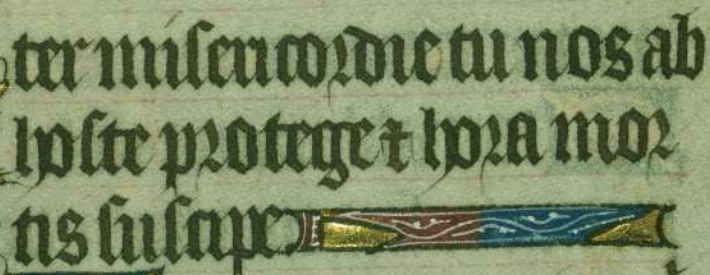 ter misericordie tu nos ab
hoste protege et hora mor
tis suscipe